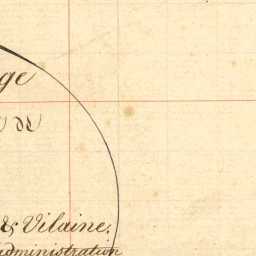 ge
& Vilaine.
administration